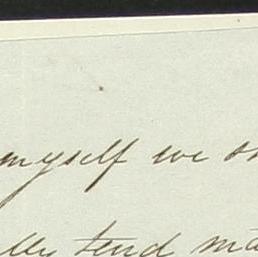 myself we
lly tend